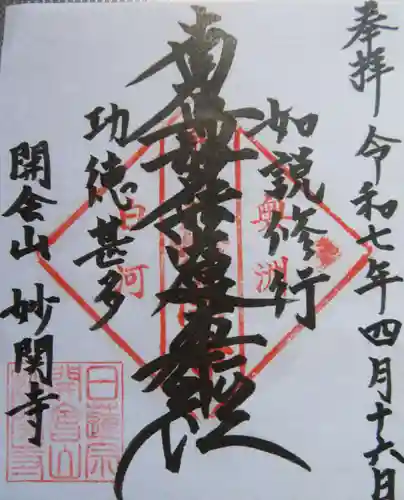 奉拝 令和七年四月十六日
如説修行
奥洲
南無妙法蓮華経
功徳甚多
白河
開会山 妙関寺
日蓮宗
開会山